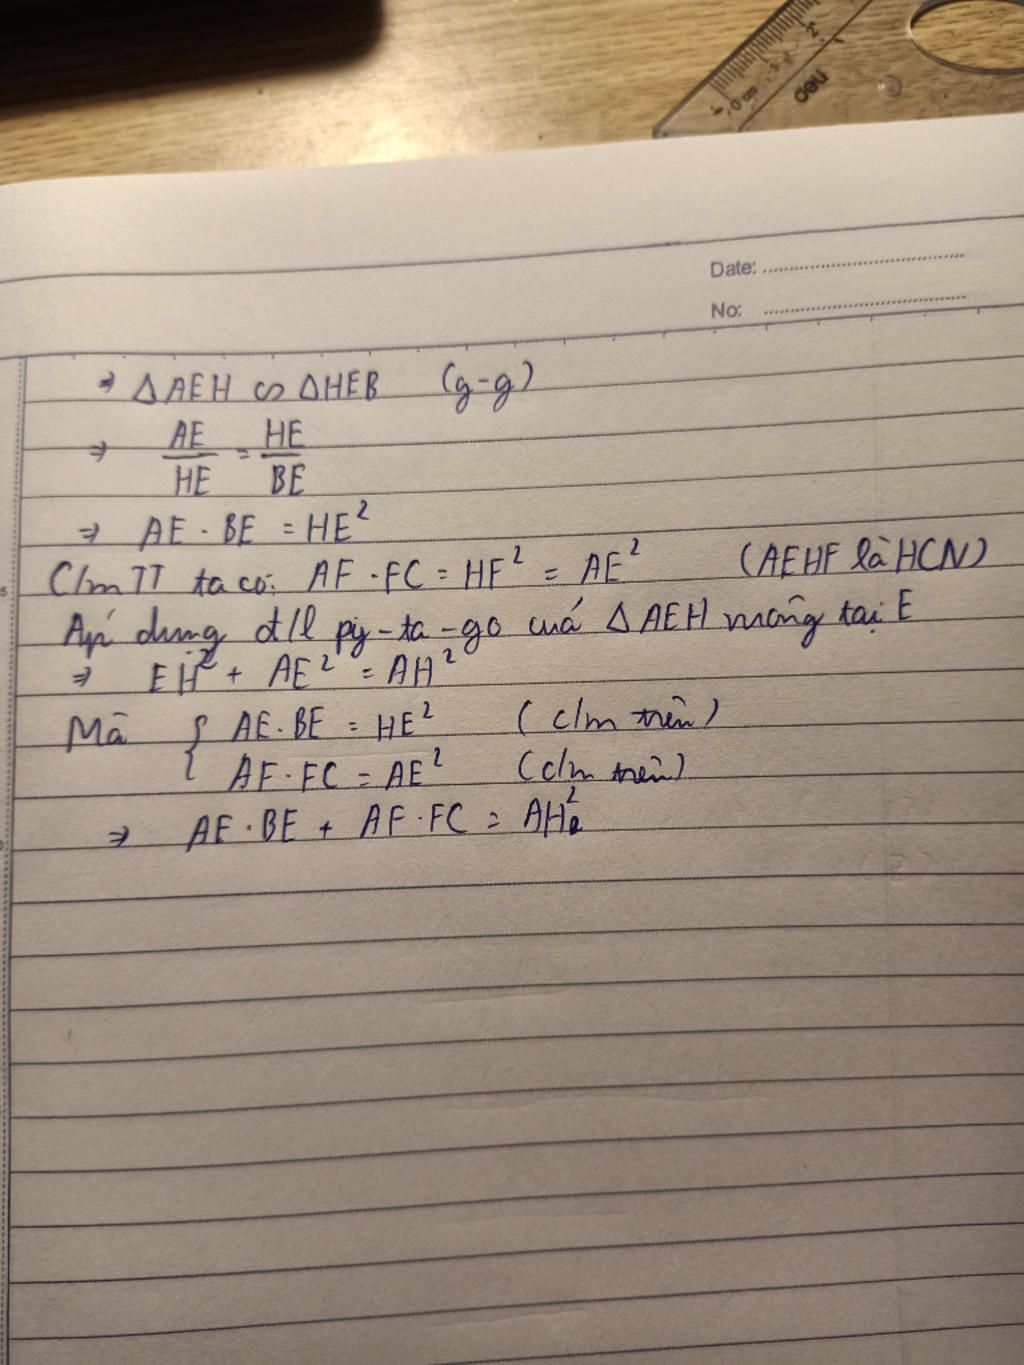 deli
0 cm 1 2
Date:
No:
⇒ ΔAEH ∽ ΔHEB (g-g)
⇒ AE/HE = HE/BE
⇒ AE · BE = HE²
C/m TT ta có: AF · FC = HF² = AE² (AEHF là HCN)
Áp dụng đ/l py-ta-go cuả ΔAEH vuông tại E
⇒ EH² + AE² = AH²
Mà { AE · BE = HE² (c/m trên)
AF · FC = AE² (c/m trên)
⇒ AE · BE + AF · FC = AH²